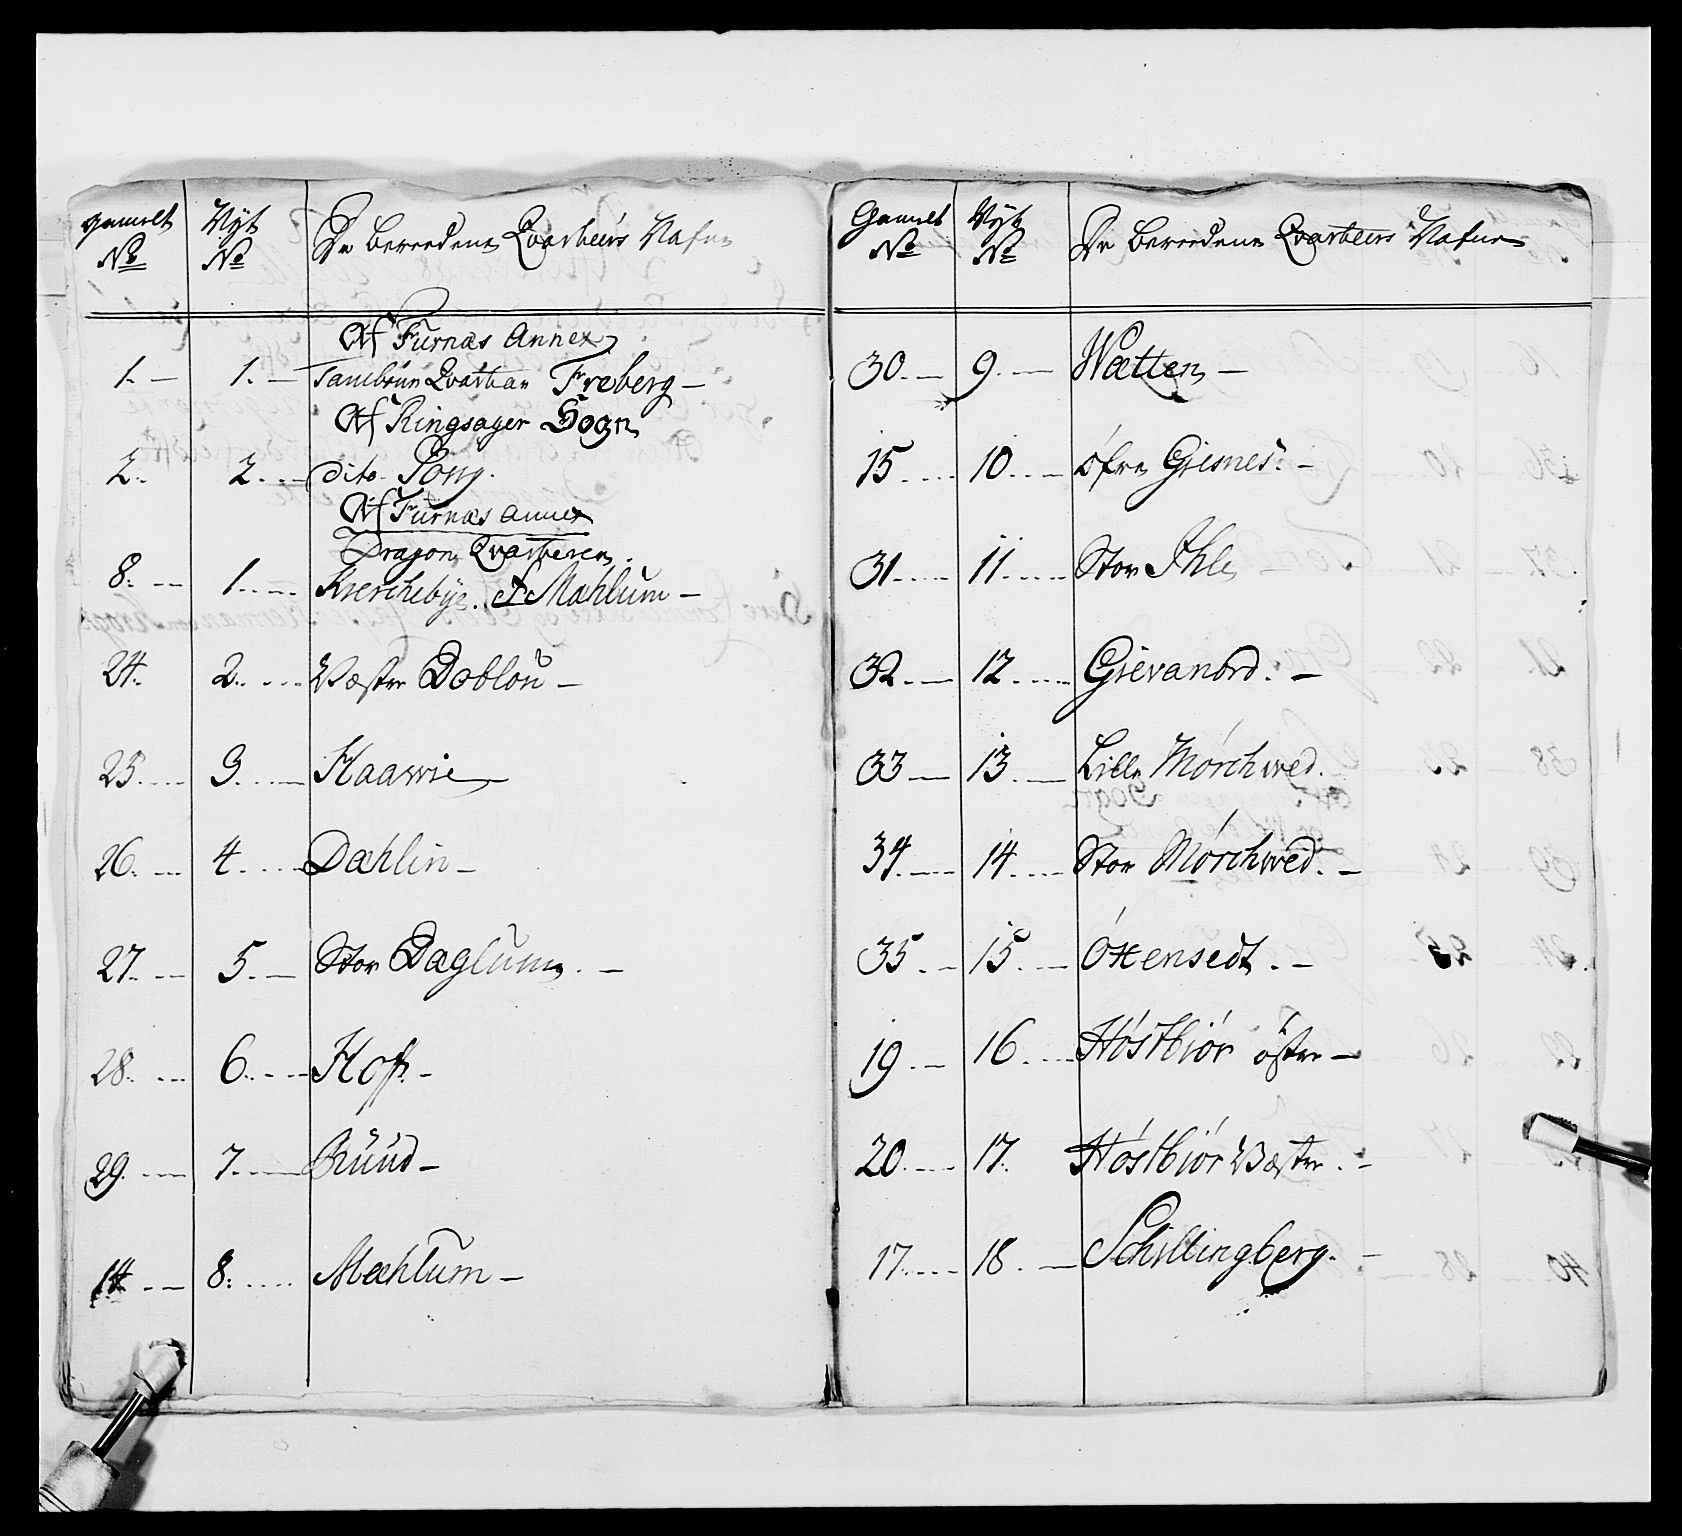 gamelt No
Nyt No
De beredene Qvarteers Nafne
Af Furnæs Annex
1. — 1. — Tambour Qvarteer Freberg —
Af Ringsager Sogn
2. 2. — dito Pong.
Af Furnæs annex
Dragon Qvarteren.
8. — 1. — Kverchebye. & Mæhlum —
24. 2. — Væstre Doblou —
25. — 3. — Haawie
26. — 4. — Dæhlin —
27. — 5. — Stor Daglum. —
28. — 6. — Hof. —
29. — 7. — Ruud —
14 — 8. — Mæhlum —
Gamelt No
Nyt No
De beredene Qvarteers Nafne
30. — 9. — Wætten —
15. — 10. — öfre Gjesnes. —
31. — 11. — Stor Ihle —
32. — 12. — Gievanord. —
33 — 13. — Lille Mórchwed.
34. — 14. — Stor Mórchwed. —
35. — 15. — Óxensedt. —
19. — 16. — Hóstbiór östre —
20. — 17. Hóstbiór Væstre. —
17. — 18. — Schillingberg. —